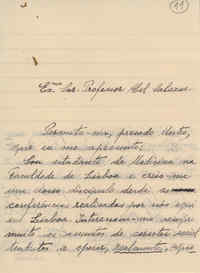 11
Exmo Snr. Professor Abel Salazar
Permita-me, prezado Mestre,
que eu me apresente:
Sou estudante de Medicina na
Faculdade de Lisboa e creio-me
um seu discípulo desde as
conferências realizadas por vós aqui
em Lisboa. Interessam-me
muito os assuntos de
e apoiar, realmente,